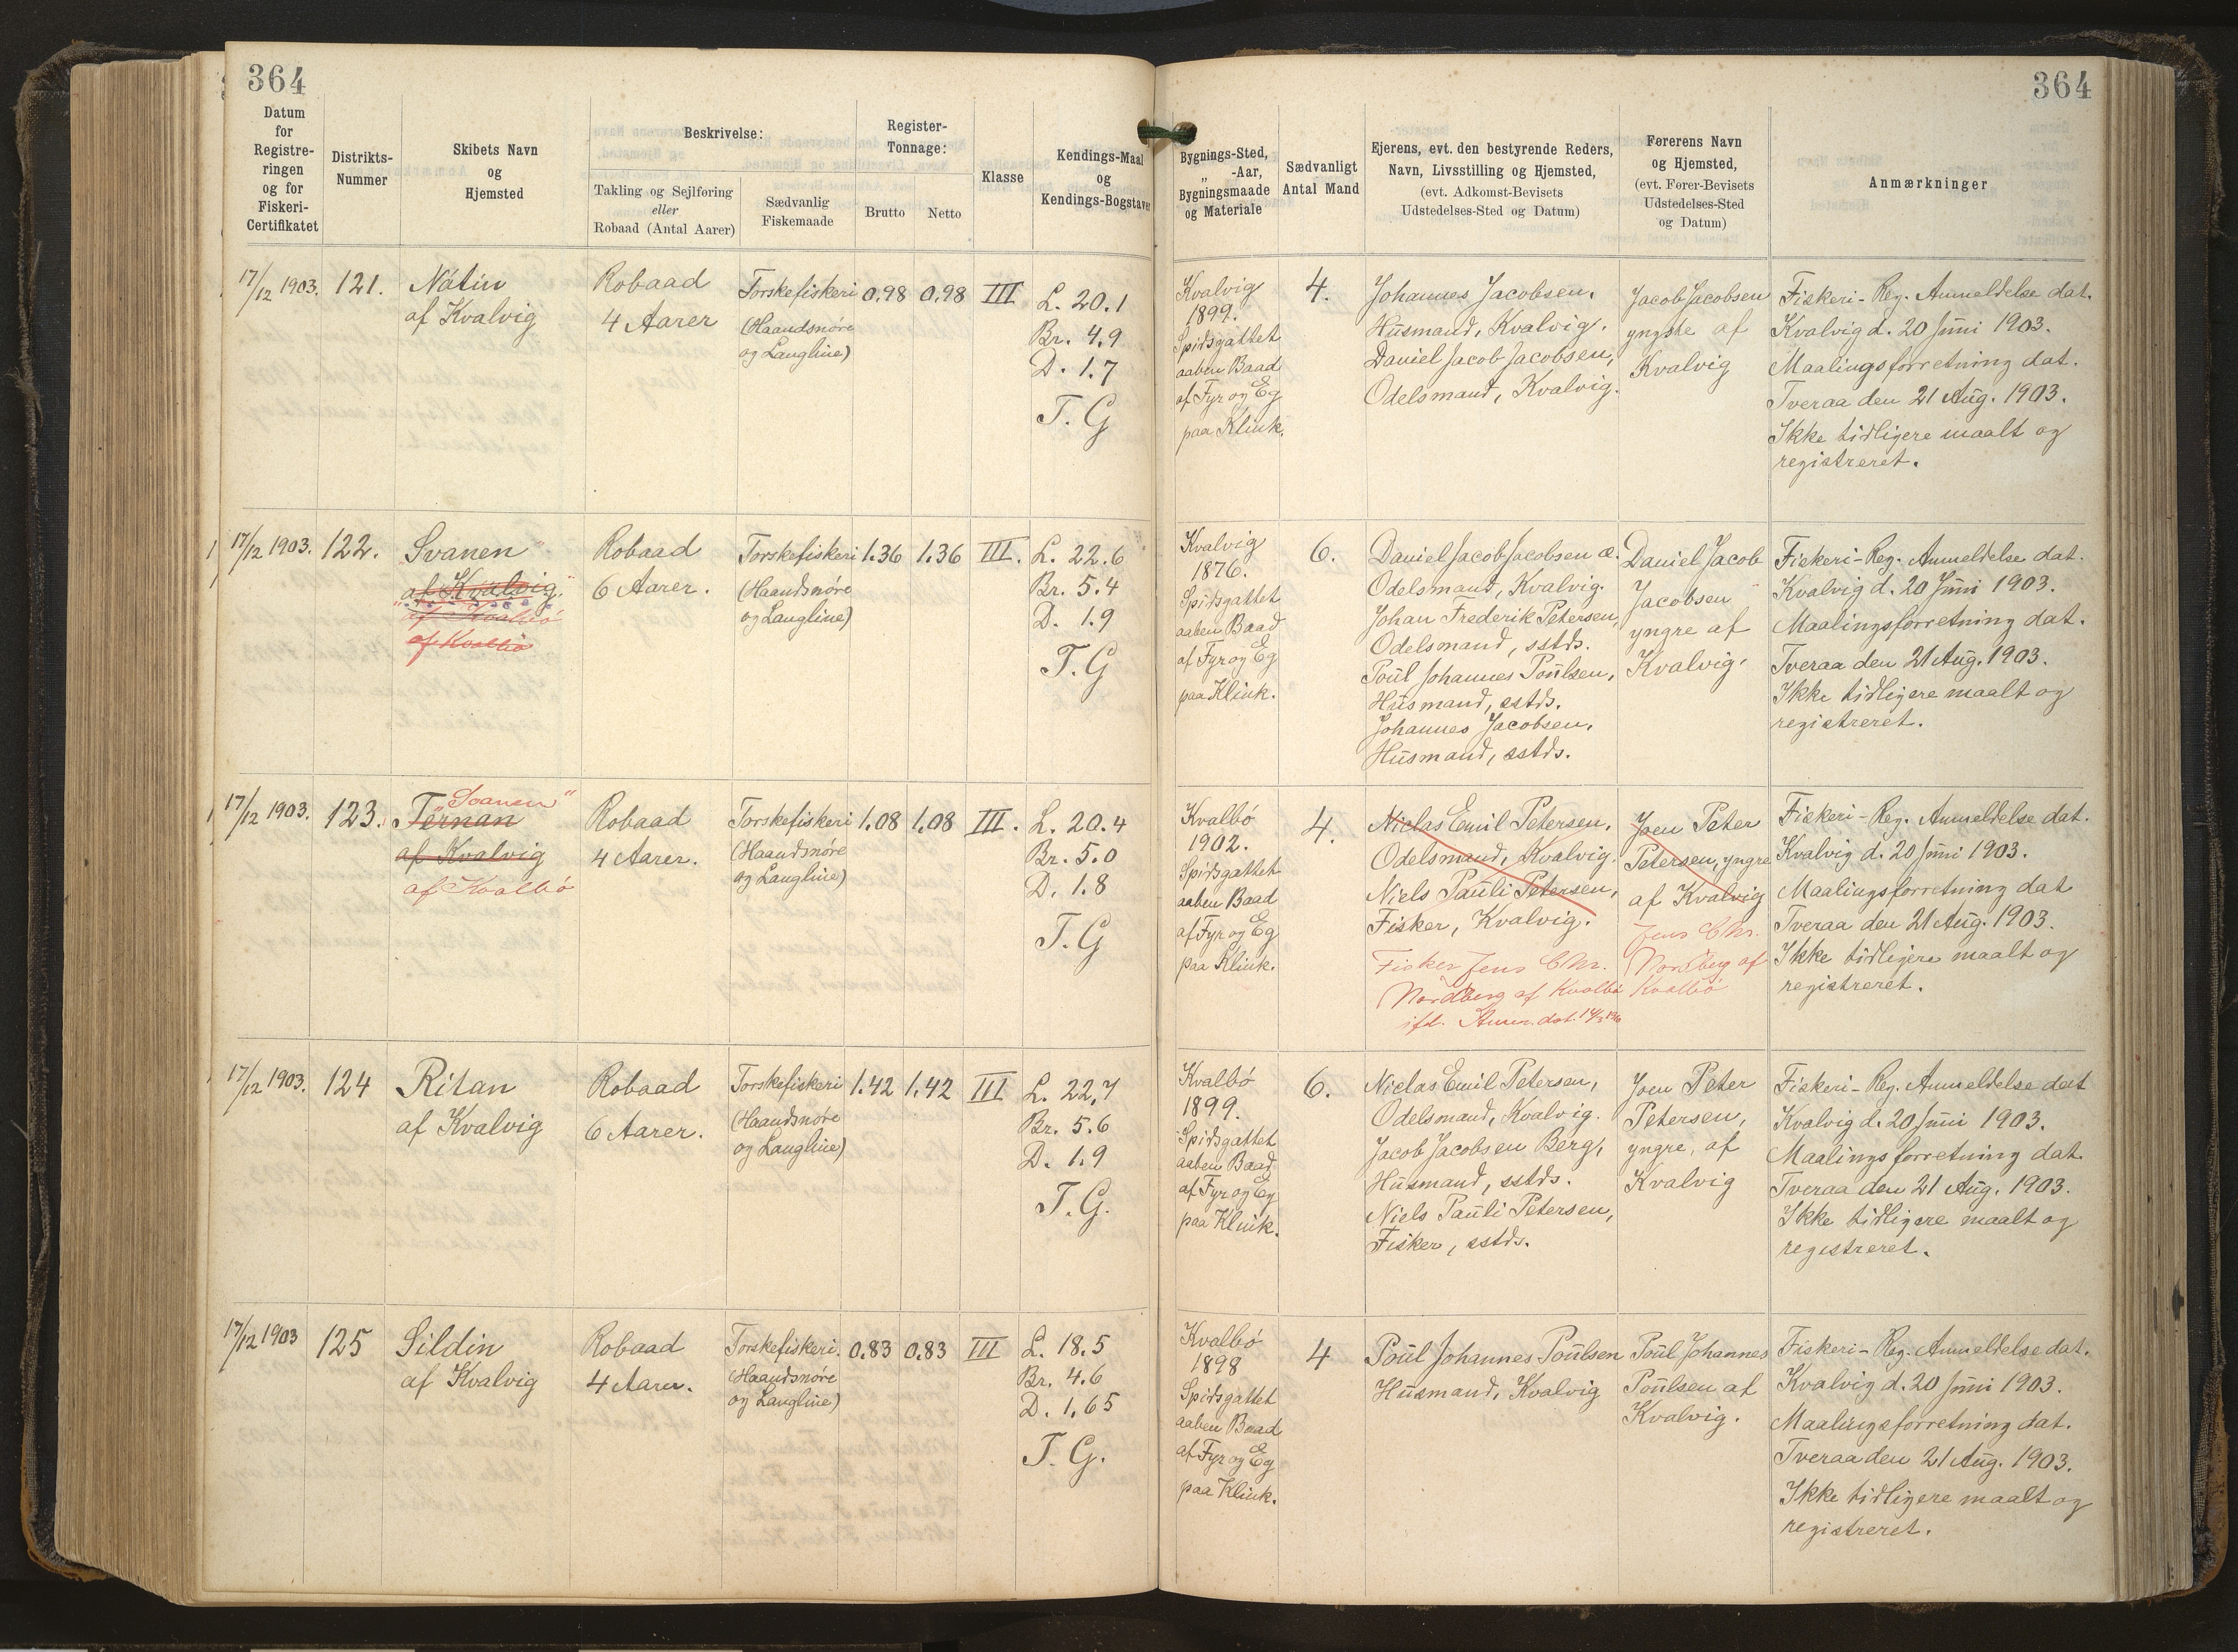 364
364
Datum
for
Registre-
ringen
og for
Fiskeri-
Certifikatet
Distrikts-
Nummer
Skibets Navn
og
Hjemsted
Beskrivelse:
Takling og Sejlføring
eller
Robaad (Antal Aarer)
Sædvanlig
Fiskemaade
Register-
Tonnage:
Brutto
Netto
Klasse
Kendings-Maal
og
Kendings-Bogstaver
Bygnings-Sted,
„ -Aar,
Bygningsmaade
og Materiale
Sædvanligt
Antal Mand
Ejerens, evt. den bestyrende Reders,
Navn, Livsstilling og Hjemsted,
(evt. Adkomst-Bevisets
Udstedelses-Sted og Datum)
Førerens Navn
og Hjemsted,
(evt. Fører-Bevisets
Udstedelses-Sted
og Datum)
Anmærkninger
17/12 1903.
121.
Nátin
af Kvalvig
Robaad
4 Aarer
Torskefiskeri
(Haandsnøre
og Langline)
0.98
0.98
III
L. 20.1
Br. 4.9
D. 1.7
T. G
Kvalvig
1899.
Spidsgattet
aaben Baad
af Fyr og Eg
paa Klink.
4.
Johannes Jacobsen,
Husmand, Kvalvig.
Daniel Jacob Jacobsen,
Odelsmand, Kvalvig.
Jacob Jacobsen
yngste af
Kvalvig
Fiskeri-Reg. Anmeldelse dat.
Kvalvig d. 20 Juni 1903.
Maalingsforretning dat.
Tveraa den 21 Aug. 1903.
Ikke tidligere maalt og
registreret.
17/12 1903.
122.
Svanen
af Kvalvig.
af Kvalbö
af Kvalbö
Robaad
6 Aarer.
Torskefiskeri
(Haandsnøre
og Langline)
1.36
1.36
III.
L. 22.6
Br. 5.4
D. 1.9
T. G
Kvalvig
1876.
Spidsgattet
aaben Baad
af Fyr og Eg
paa Klink.
6.
Daniel Jacob Jacobsen æ.
Odelsmand, Kvalvig.
Johan Frederik Petersen,
Odelsmand, sstds.
Poul Johannes Poulsen,
Husmand, sstds.
Johannes Jacobsen,
Husmand, sstds.
Daniel Jacob
Jacobsen
yngre af
Kvalvig.
Fiskeri-Reg. Anmeldelse dat.
Kvalvig d. 20 Juni 1903.
Maalingsforretning dat.
Tveraa den 21 Aug. 1903.
Ikke tidligere maalt og
registreret.
17/12 1903.
123.
"Svanen"
Ternan
af Kvalvig
af Kvalbö
Robaad
4 Aarer.
Torskefiskeri
(Haandsnøre
og Langline)
1.08
1.08
III.
L. 20.4
Br. 5.0
D. 1.8
T. G
Kvalbö
1902.
Spidsgattet
aaben Baad
af Fyr og Eg
paa Klink.
4.
Niclas Emil Petersen,
Odelsmand, Kvalvig.
Niels Pauli Petersen,
Fisker, Kvalvig.
Fisker Jens Chr.
Nordberg af Kvalbö
ifl. Anm. dat.
Joen Peter
Petersen, yngre
af Kvalvig
Jens Chr.
Nordberg af
Kvalbö
Fiskeri-Reg. Anmeldelse dat.
Kvalvig d. 20 Juni 1903.
Maalingsforretning dat
Tveraa den 21 Aug. 1903.
Ikke tidligere maalt og
registreret.
17/12 1903.
124
Ritan
af Kvalvig
Robaad
6 Aarer.
Torskefiskeri
(Haandsnøre
og Langline)
1.42
1.42
III
L. 22,7
Br. 5.6
D. 1.9
T. G.
Kvalbö
1899.
Spidsgattet
aaben Baad
af Fyr og Eg
paa Klink.
6.
Niclas Emil Petersen,
Odelsmand, Kvalvig.
Jacob Jacobsen Berg,
Husmand, sstds.
Niels Pauli Petersen,
Fisker, sstds.
Joen Peter
Petersen,
yngre, af
Kvalvig
Fiskeri-Reg. Anmeldelse dat
Kvalvig d. 20 Juni 1903.
Maalingsforretning dat.
Tveraa den 21 Aug. 1903.
Ikke tidligere maalt og
registreret.
17/12 1903
125
Sildin
af Kvalvig
Robaad
4 Aarer.
Torskefiskeri.
(Haandsnøre
og Langline)
0.83
0.83
III
L. 18.5
Br. 4.6
D. 1.65
T. G.
Kvalbö
1898
Spidsgattet
aaben Baad
af Fyr og Eg
paa Klink.
4
Poul Johannes Poulsen
Husmand, Kvalvig
Poul Johannes
Poulsen af
Kvalvig.
Fiskeri-Reg. Anmeldelse dat.
Kvalvig d. 20 Juni 1903.
Maalingsforretning dat.
Tveraa den 21 Aug. 1903.
Ikke tidligere maalt og
registreret.